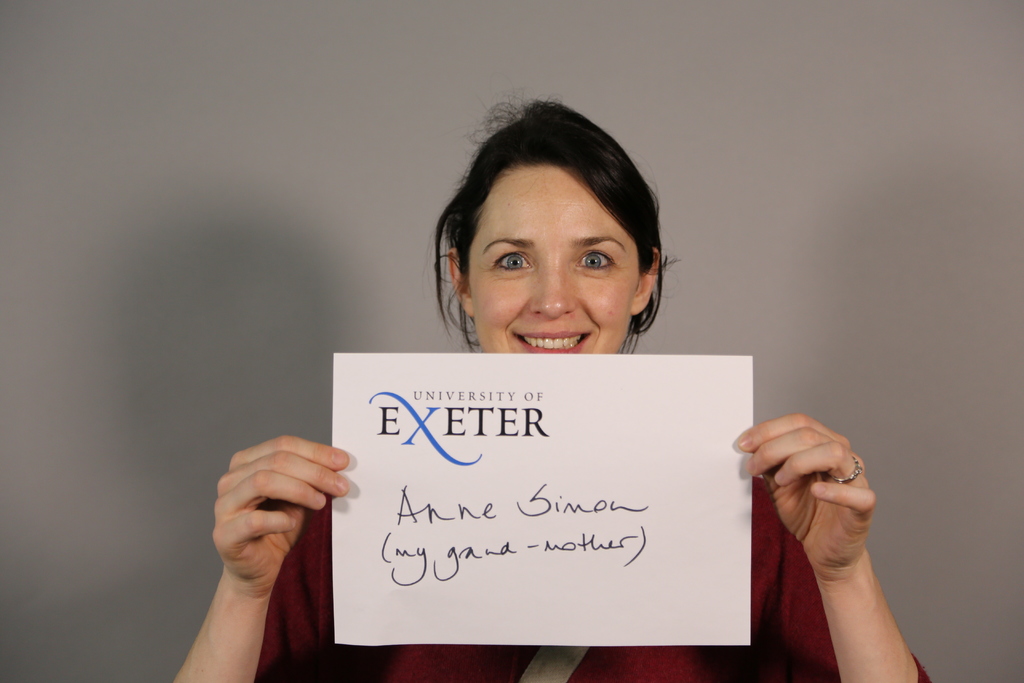 UNIVERSITY OF
EXETER
Anne Simon
(my grand-mother)